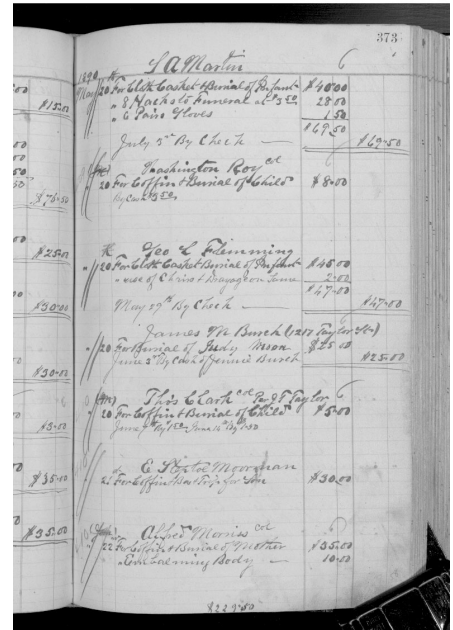 373
S A Martin
1890
May 20 For Cloth Casket & Burial of Infant $40.00
" 8 Hacks to Funeral at $3.50 28.00
" 6 Pairs Gloves 1.50
$69.50
July 3rd By Check — $69.50
Washington Roy cd
20 For Coffin & Burial of Child $8.00
By Cash $3.50
Geo L Flemming
20 For Cloth Casket & Burial of Infant $45.00
2.00
$47.00
May 29th By Check — $47.00
James W Burch (1217 Taylor St)
20 For Burial of Judy Moon $25.00
June 3rd By Cash of Jennie Burch $25.00
Thos Clark cd Per J T Taylor
20 For Coffin & Burial of Child $5.00
E Steptoe Moorman
21 For Coffin & Box for $30.00
Alfred Morriss cd
22 For Coffin & Burial of Mother $35.00
" Embalming Body — 10.00
$229.50
$15.00
$76.50
$25.00
$30.00
$30.00
$5.00
$35.00
$35.00